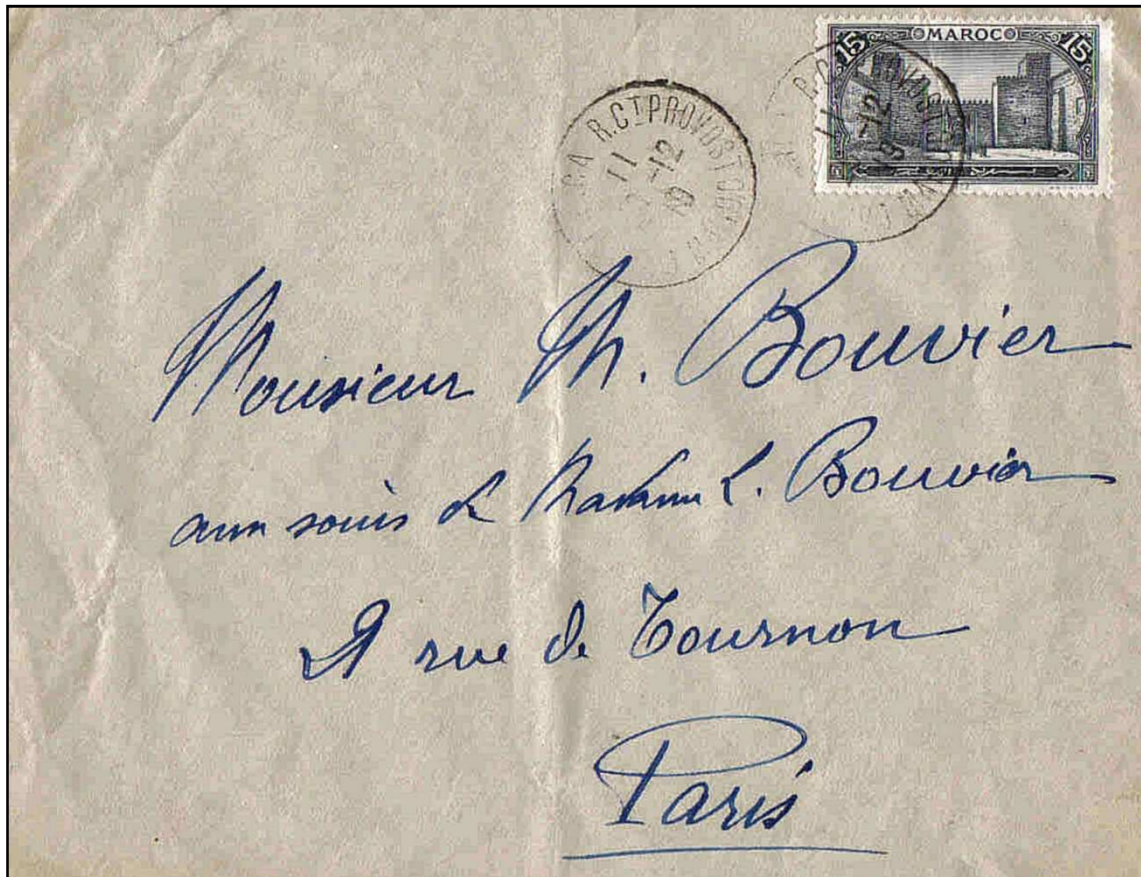 15 MAROC 15
R. CT PROVOST
11
-12
19
Monsieur M. Bouvier
aux soins de Madame L. Bouvier
rue de Tournon
Paris